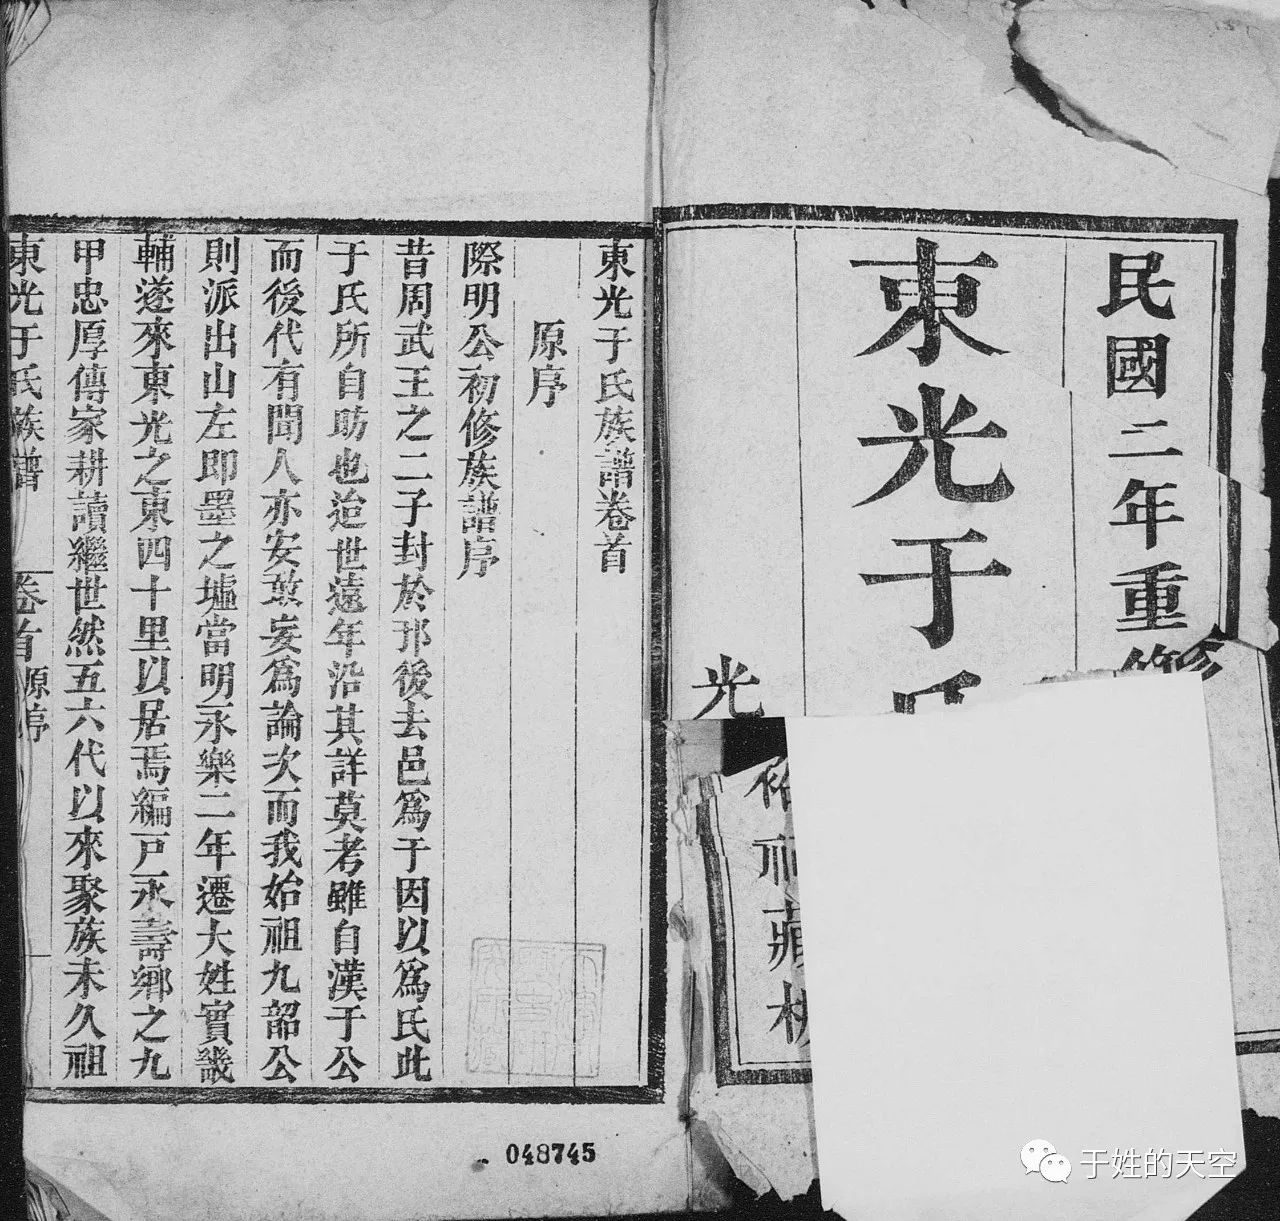 民國二年重修
東光于氏
光
裕祠藏板
東光于氏族譜卷首
原序
際明公初修族譜序
昔周武王之二子封於邘後去邑爲于因以爲氏此
于氏所自昉也迨世遠年沿其詳莫考雖自漢于公
而後代有聞人亦安敢妄爲論次而我始祖九韶公
則派出山左即墨之墟當明永樂二年遷大姓實畿
輔遂來東光之東四十里以居焉編戸永壽鄉之九
甲忠厚傳家耕讀繼世然五六代以來聚族未久祖
東光于氏族譜 卷首 原序
048745
于姓的天空